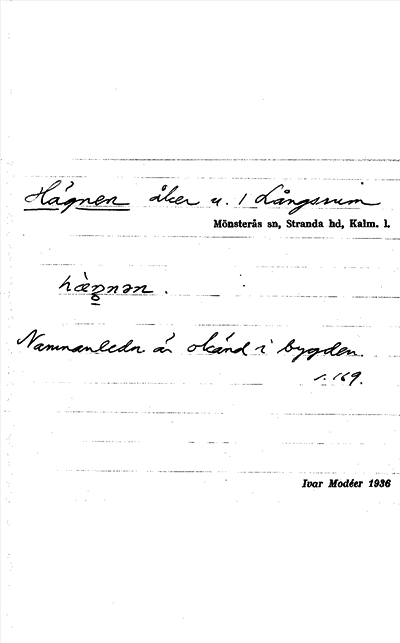 Hägnen åker u. 1 Långsrum
Mönsterås sn, Stranda hd, Kalm. l.
hàgnən.
Namnanledn är okänd i bygden.
s. 169.
Ivar Modéer 1936